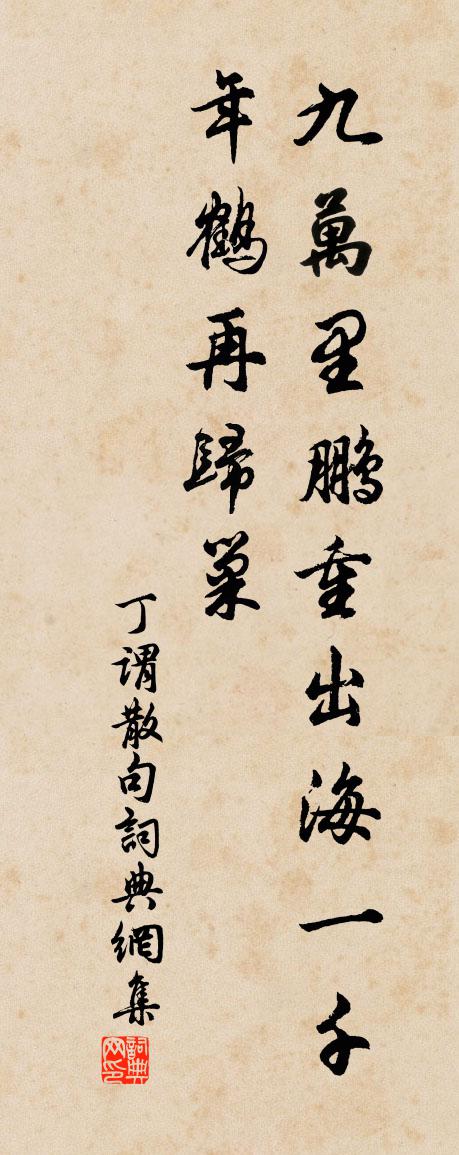 九萬里鵬重出海一千
年鶴再歸巢
丁謂散句詞典網集
詞典網印